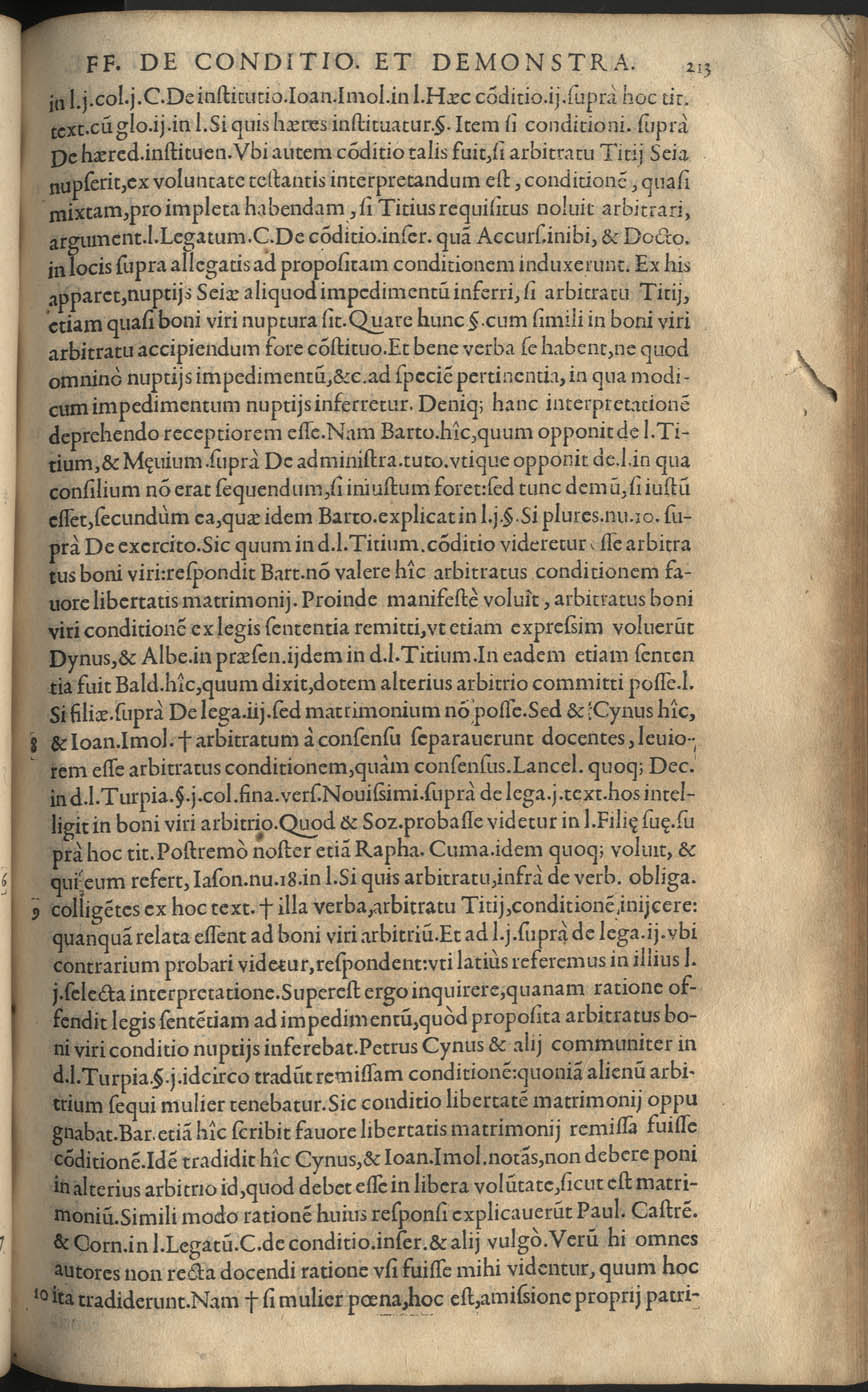 FF. DE CONDITIO. ET DEMONSTRA. 213
in l.j.col.j.C.De inſtitutio.Ioan.Imol.in l.Hæc cōditio.ij.ſuprà hoc tit.
text.cū glo.ij.in l.Si quis hæres inſtituatur.§. Item ſi conditioni. ſuprà
De hæred.inſtituen.Vbi autem cōditio talis fuit,ſi arbitratu Titij Seia
nupſerit,ex voluntate teſtantis interpretandum eſt, conditionē, quaſi
mixtam,pro impleta habendam, ſi Titius requiſitus noluit arbitrari,
argument.l.Legatum.C.De cōditio.inſer. quā Accurſ.inibi, & Docto.
in locis ſupra allegatis ad propoſitam conditionem induxerunt. Ex his
apparet,nuptijs Seiæ aliquod impedimentū inferri, ſi arbitratu Titij,
etiam quaſi boni viri nuptura ſit.Quare hunc §.cum ſimili in boni viri
arbitratu accipiendum fore cōſtituo.Et bene verba ſe habent,ne quod
omninò nuptijs impedimentū,&c.ad ſpeciē pertinentia, in qua modi-
cum impedimentum nuptijs inferretur. Deniq; hanc interpretationē
deprehendo receptiorem eſſe.Nam Barto.hîc,quum opponit de l.Ti-
tium,& Męuium.ſuprà De adminiſtra.tuto.vtique opponit de.l.in qua
conſilium nō erat ſequendum,ſi iniuſtum foret:ſed tunc demū,ſi iuſtū
eſſet,ſecundùm ea,quæ idem Barto.explicat in l.j.§.Si plures.nu.10. ſu-
prà De exercito.Sic quum in d.l.Titium.cōditio videretur eſſe arbitra
tus boni viri:reſpondit Bart.nō valere hîc arbitratus conditionem fa-
uore libertatis matrimonij. Proinde manifeſtè voluît, arbitratus boni
viri conditionē ex legis ſententia remitti,vt etiam expreſſim voluerūt
Dynus,& Albe.in præſen.ijdem in d.l.Titium.In eadem etiam ſenten
tia fuit Bald.hîc,quum dixit,dotem alterius arbitrio committi poſſe.l.
Si filiæ.ſuprà De lega.iij.ſed matrimonium nō poſſe.Sed & Cynus hîc,
8 & Ioan.Imol.† arbitratum à conſenſu ſeparauerunt docentes, leuio-
rem eſſe arbitratus conditionem,quàm conſenſus.Lancel. quoq; Dec.
in d.l.Turpia.§.j.col.fina.verſ.Nouiſsimi.ſuprà de lega.j.text.hos intel-
ligit in boni viri arbitrio.Quod & Soz.probaſſe videtur in l.Filię ſuę.ſu
prà hoc tit.Poſtremò noſter etiā Rapha. Cuma.idem quoq; voluit, &
qui eum refert, Iaſon.nu.18.in l.Si quis arbitratu,infrà de verb. obliga.
9 colligētes ex hoc text.† illa verba,arbitratu Titij,conditionē inijcere:
quanquā relata eſſent ad boni viri arbitriū.Et ad l.j.ſuprà de lega.ij.vbi
contrarium probari videtur,reſpondent:vti latiùs referemus in illius l.
j.ſelecta interpretatione.Supereſt ergo inquirere,quanam ratione of-
fendit legis ſentētiam ad impedimentū,quòd propoſita arbitratus bo-
ni viri conditio nuptijs inferebat.Petrus Cynus & alij communiter in
d.l.Turpia.§.j.idcirco tradūt remiſſam conditionē:quoniā alienū arbi-
trium ſequi mulier tenebatur.Sic conditio libertatē matrimonij oppu
gnabat.Bar.etiā hîc ſcribit fauore libertatis matrimonij remiſſa fuiſſe
cōditionē.Idē tradidit hîc Cynus,& Ioan.Imol.notās,non debere poni
in alterius arbitrio id,quod debet eſſe in libera volūtate,ſicut eſt matri-
moniū.Simili modo rationē huius reſponſi explicauerūt Paul. Caſtrē.
& Corn.in l.Legatū.C.de conditio.inſer.& alij vulgò.Verū hi omnes
autores non recta docendi ratione vſi fuiſſe mihi videntur, quum hoc
10 ita tradiderunt.Nam † ſi mulier pœna,hoc eſt,amiſsione proprij patri-